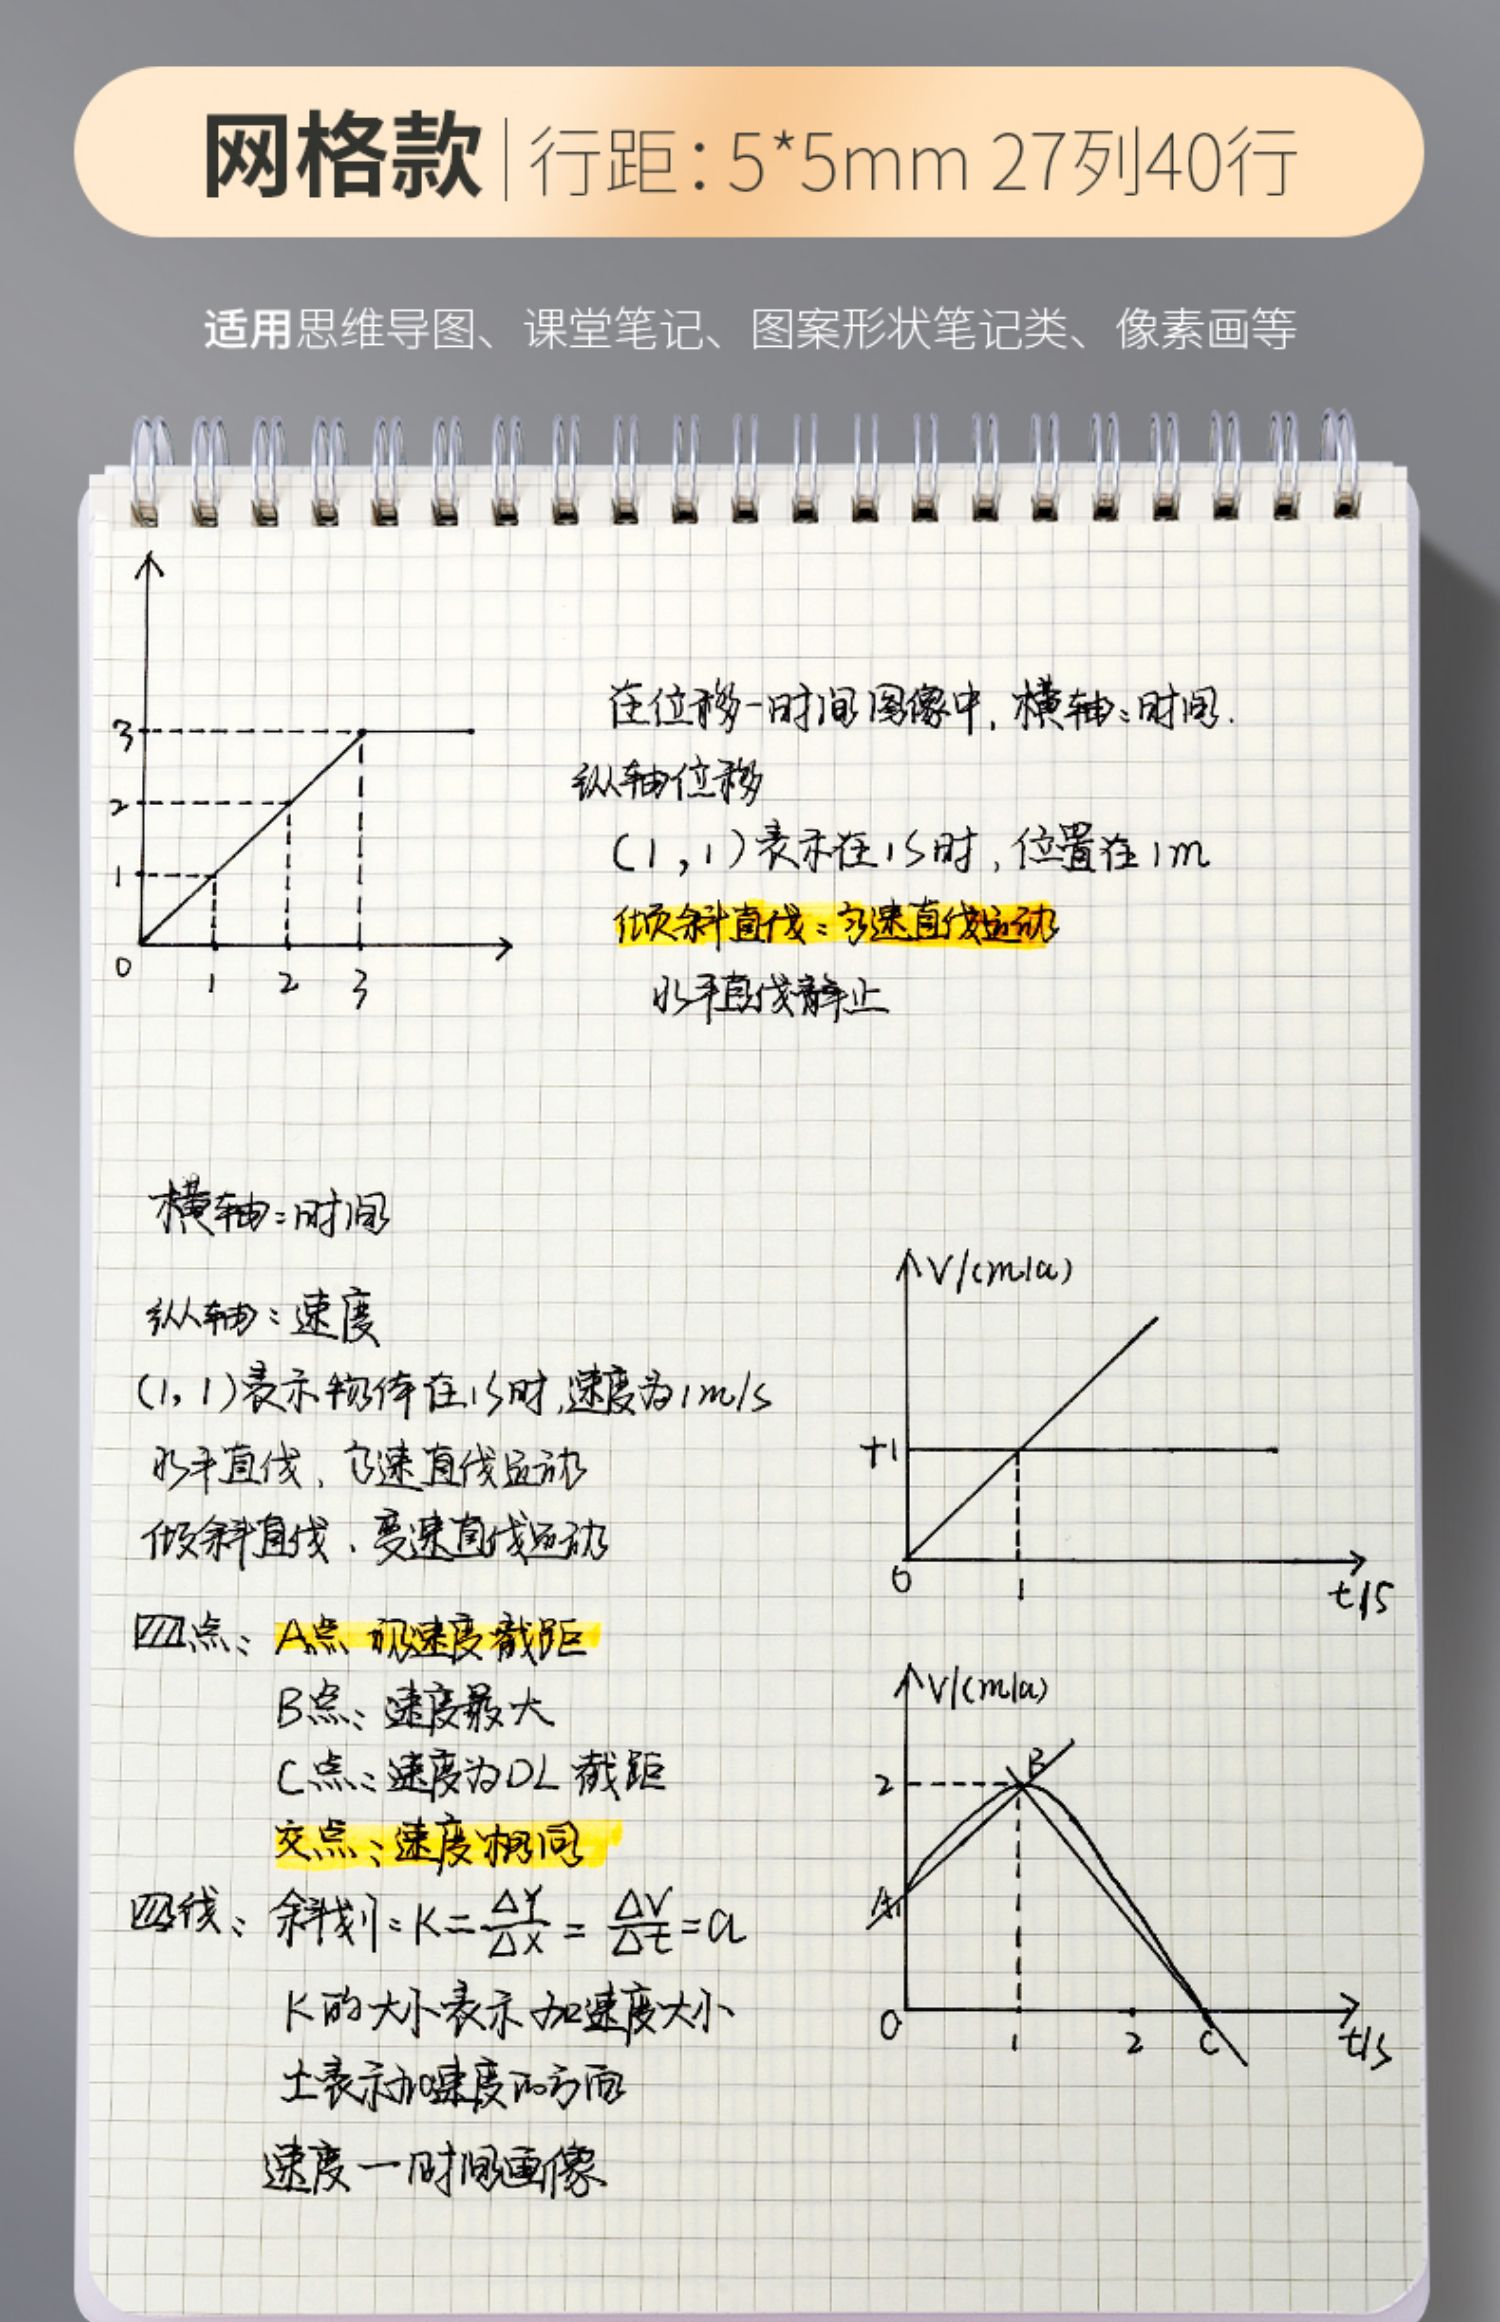 网格款 | 行距：5*5mm 27列40行
适用思维导图、课堂笔记、图案形状笔记类、像素画等
3
2
1
0
1 2 3
在位移-时间图像中，横轴：时间.
纵轴位移
(1,1)表示在1S时，位置在1m
倾斜直线：匀速直线运动
水平直线静止
横轴：时间
纵轴：速度
(1,1)表示物体在1S时,速度为1m/s
水平直线，匀速直线运动
倾斜直线、变速直线运动
V/(m/a)
+1
0 1 t/S
四点：A点 速度截距
B点：速度最大
C点：速度为0L 截距
交点：速度相同
四线：斜划：K=ΔY/ΔX=ΔV/Δt=a
K的大小表示加速度大小
士表示加速度的方面
速度一时间画像
V/(m/a)
2 B
A
0 1 2 C t/s